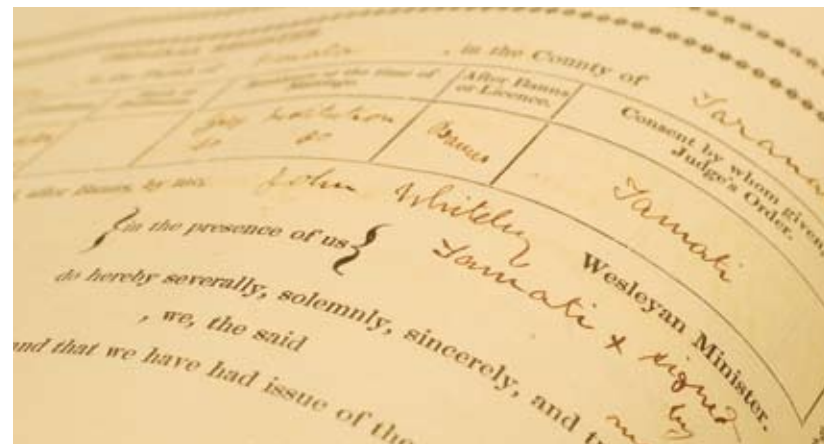 , in the County of Tarana
Residence at the time of Marriage.
After Banns or Licence.
Consent by whom given,
Judge's Order.
Banns
Tamati
after Banns, by me, John Whiteley
Wesleyan Minister.
in the presence of us
Tamati x signed
by
do hereby severally, solemnly, sincerely, and t
, we, the said
and that we have had issue of the